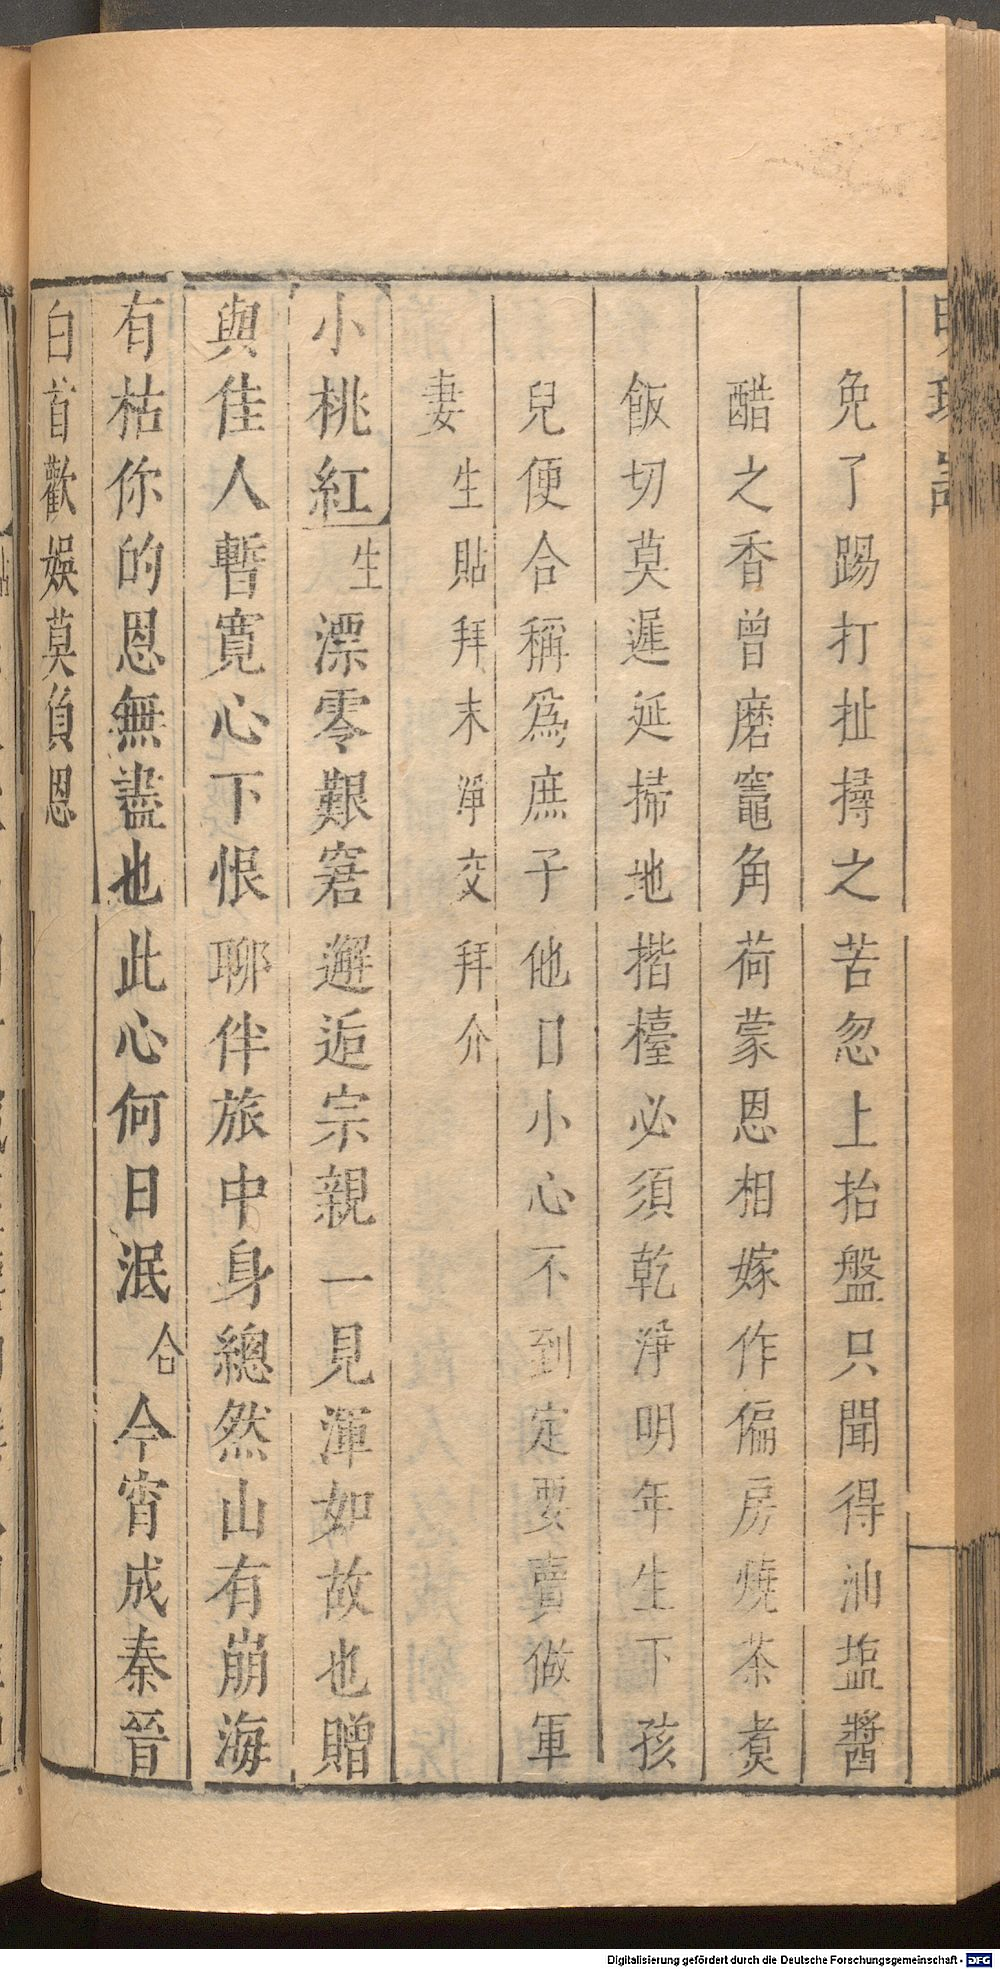 明珠記
免了踢打扯撏之苦忽上抬盤只聞得油塩醬
醋之香曾磨竈角荷蒙恩相嫁作偏房燒茶煑
飯切莫遲延掃地揩檯必須乾淨明年生下孩
兒便合稱爲庶子他日小心不到定要賣做軍
妻 生貼拜末淨交拜介
小桃紅 生 漂零艱窘邂逅宗親一見渾如故也贈
與佳人暫寬心下恨聊伴旅中身總然山有崩海
有枯你的恩無盡也此心何日泯 合 今宵成秦晉
白首歡娛莫負恩
Digitalisierung gefördert durch die Deutsche Forschungsgemeinschaft - DFG